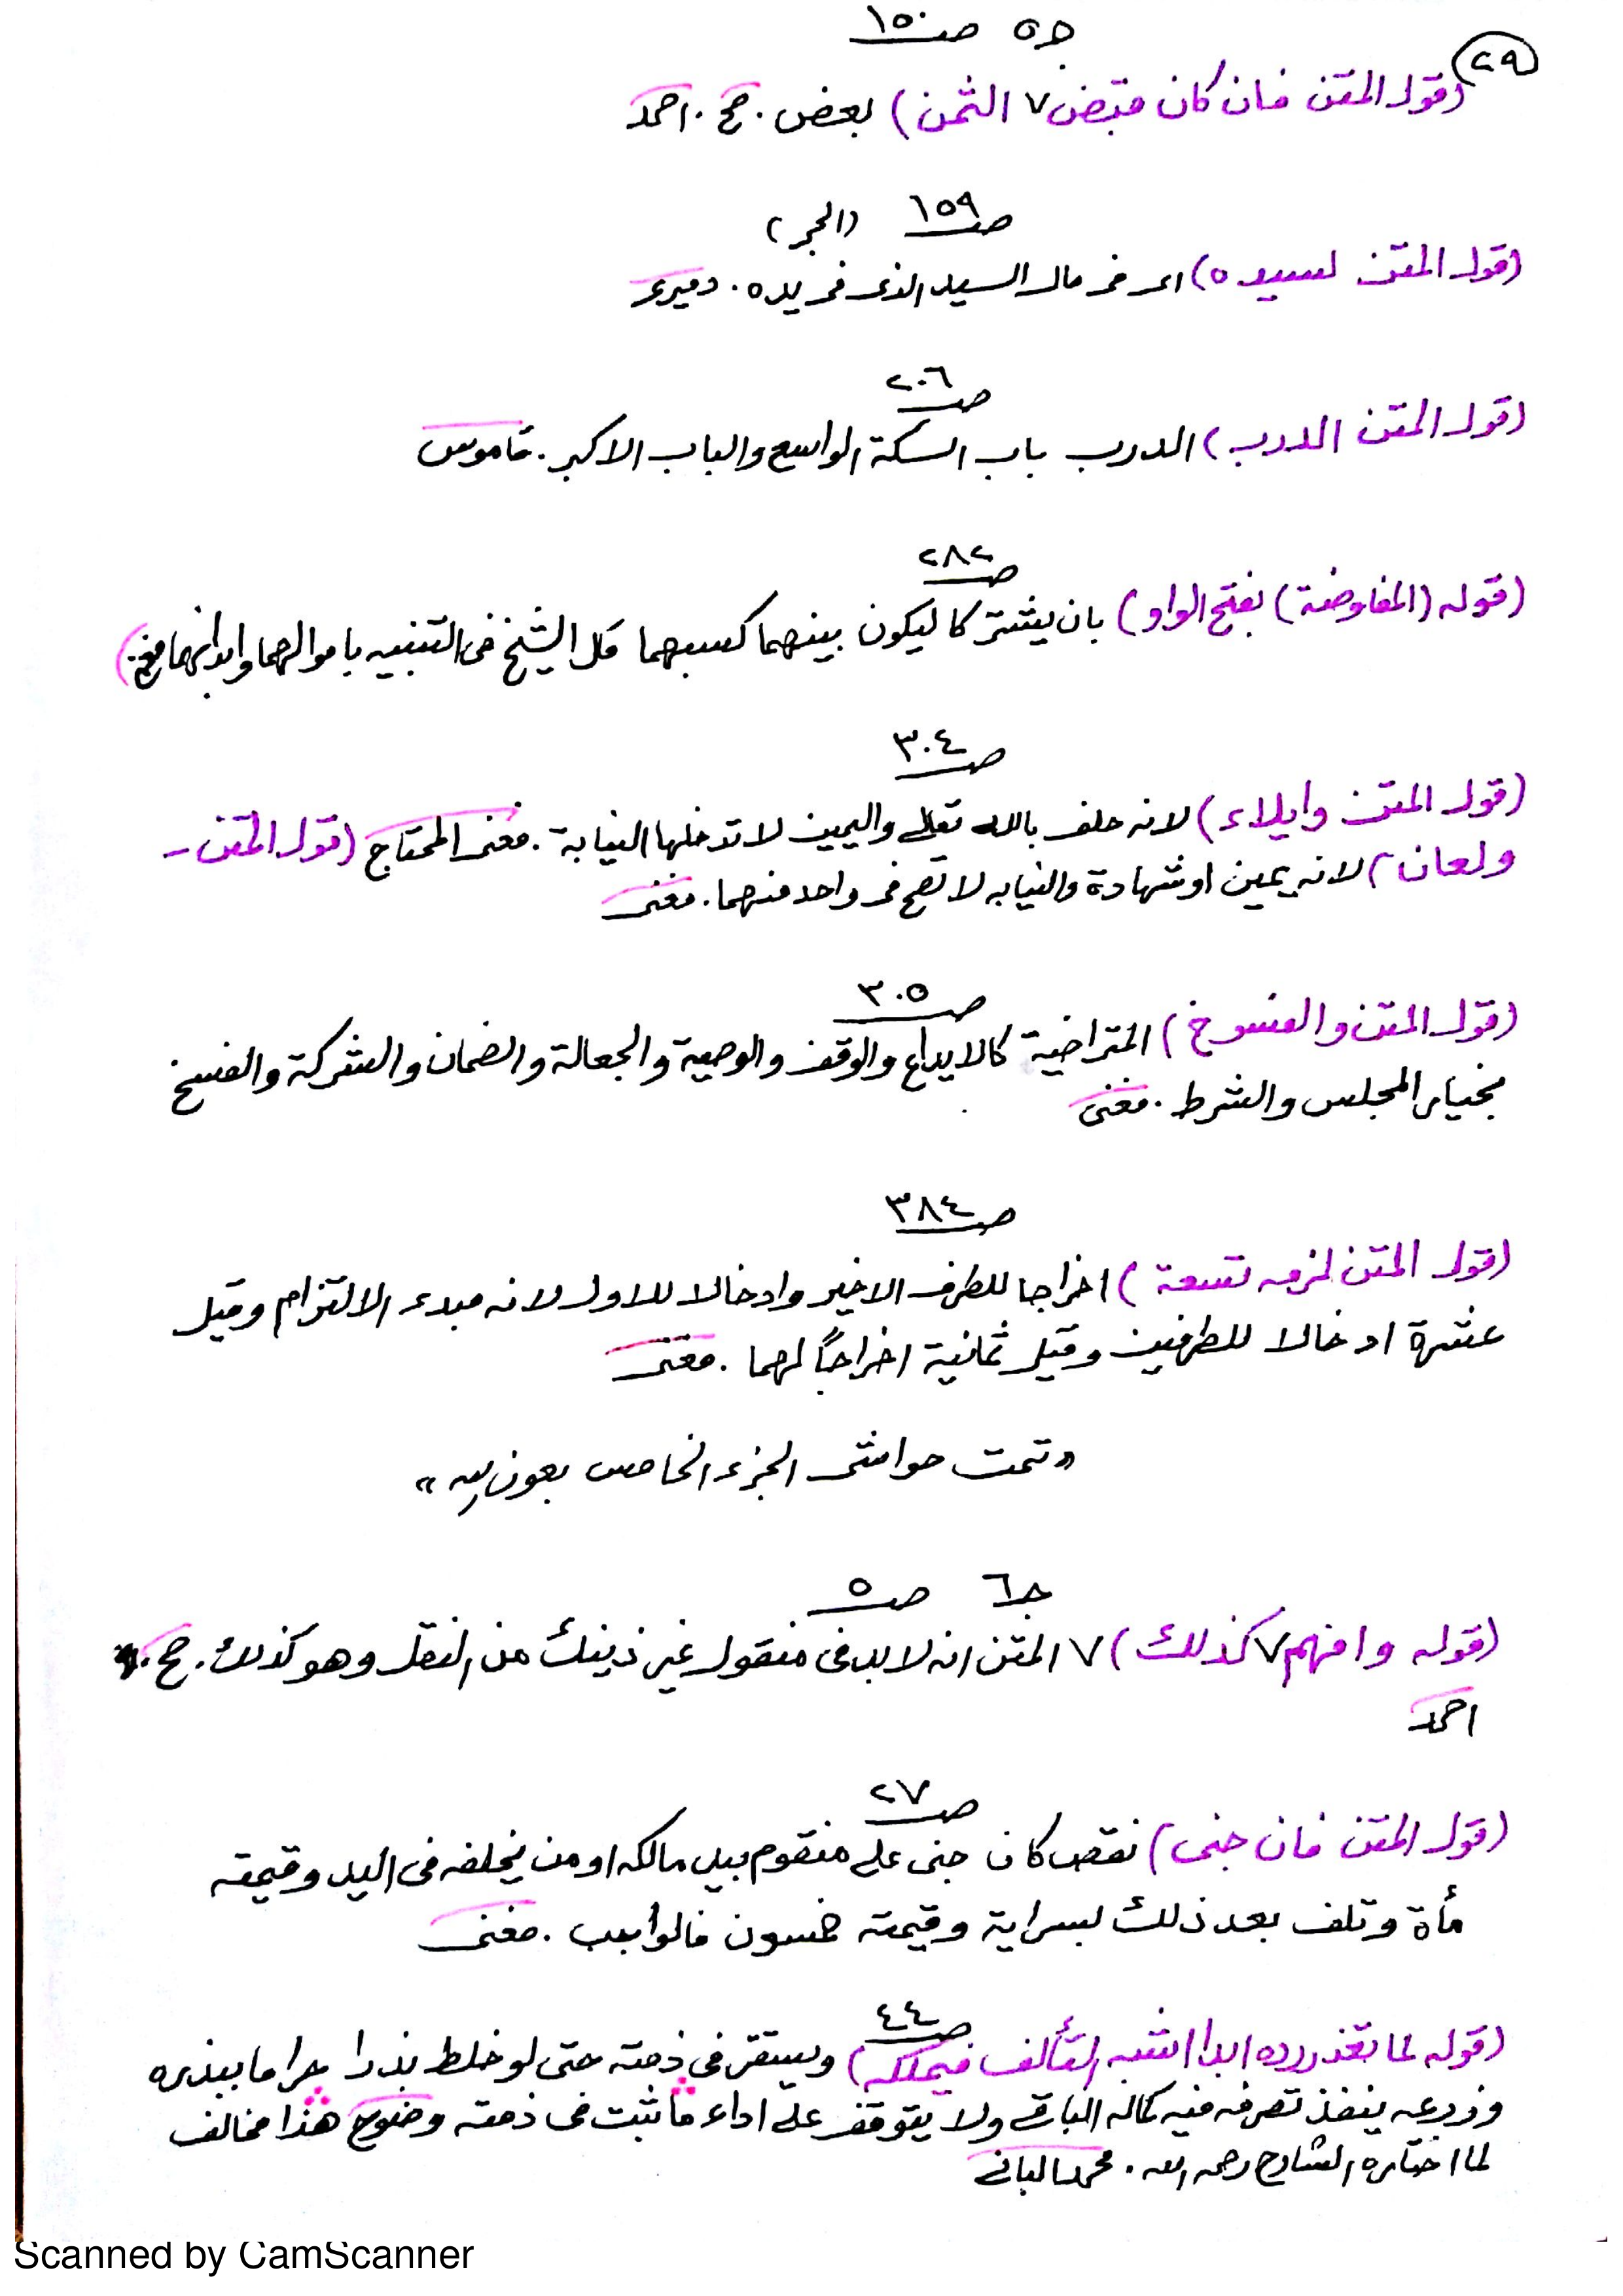 ٢٩
ج٥ صـ١٥٠
(قول المتن فان كان قبض ٧ الثمن) بعض . صح . احمد
صـ١٥٩ (الحجر)
(قول المتن لسيده) اى فى مال السيد الذى فى يده . دميرى
صـ٢٠٦
(قول المتن الدرب) الدرب باب السكة الواسع والباب الاكبر . قاموس
صـ٢٨٢
(قوله (المفاوضة) بفتح الواو) بان يشتركا ليكون بينهما كسبهما قال الشيخ فى التنبيه باموالهما وابدانهما مغنى)
صـ٣٠٤
(قول المتن وايلاء) لانه حلف بالله تعالى واليمين لا تدخلها النيابة . مغنى المحتاج (قول المتن -
ولعان) لانه يمين او شهادة والنيابه لا تصح فى واحد منهما . مغنى
صـ٣٠٥
(قول المتن والفسوخ) المتراضية كالايداع والوقف والوصية والجعالة والضمان والشركة والفسخ
بخيار المجلس والشرط . مغنى
صـ٣٨٤
(قول المتن لزمه تسعة) اخراجا للطرف الاخير وادخالا للاول لانه مبدء الالتزام وقيل
عشرة ادخالا للطرفين وقيل ثمانية اخراجاً لهما . مغنى
«تمت حواشى الجزء الخامس بعون الله»
ج٦ صـ٥
(قوله وافهم ٧ كذلك) ٧ المتن انه لا بد فى منقول غير ذينك من النقل وهو كذلك . صح .
احمد
صـ٢٧
(قول المتن فان جنى) نقص كان جنى على متقوم بيد مالكه او من يخلفه فى اليد وقيمته
مأة وتلف بعد ذلك بسراية وقيمته خمسون فالواجب . مغنى
صـ٤٤
(قوله لما تعذر رده ابدا اشبه التألف فيملكه) ويستقر فى ذمته حتى لو خلط بذرا حراما ببذره
وزرعه ينفذ تصرفه فيه كماله الباقى ولا يتوقف على اداء ما ثبت فى ذمته وضوح هذا مخالف
لما اختاره الشارح رحمه الله . محمد
Scanned by CamScanner